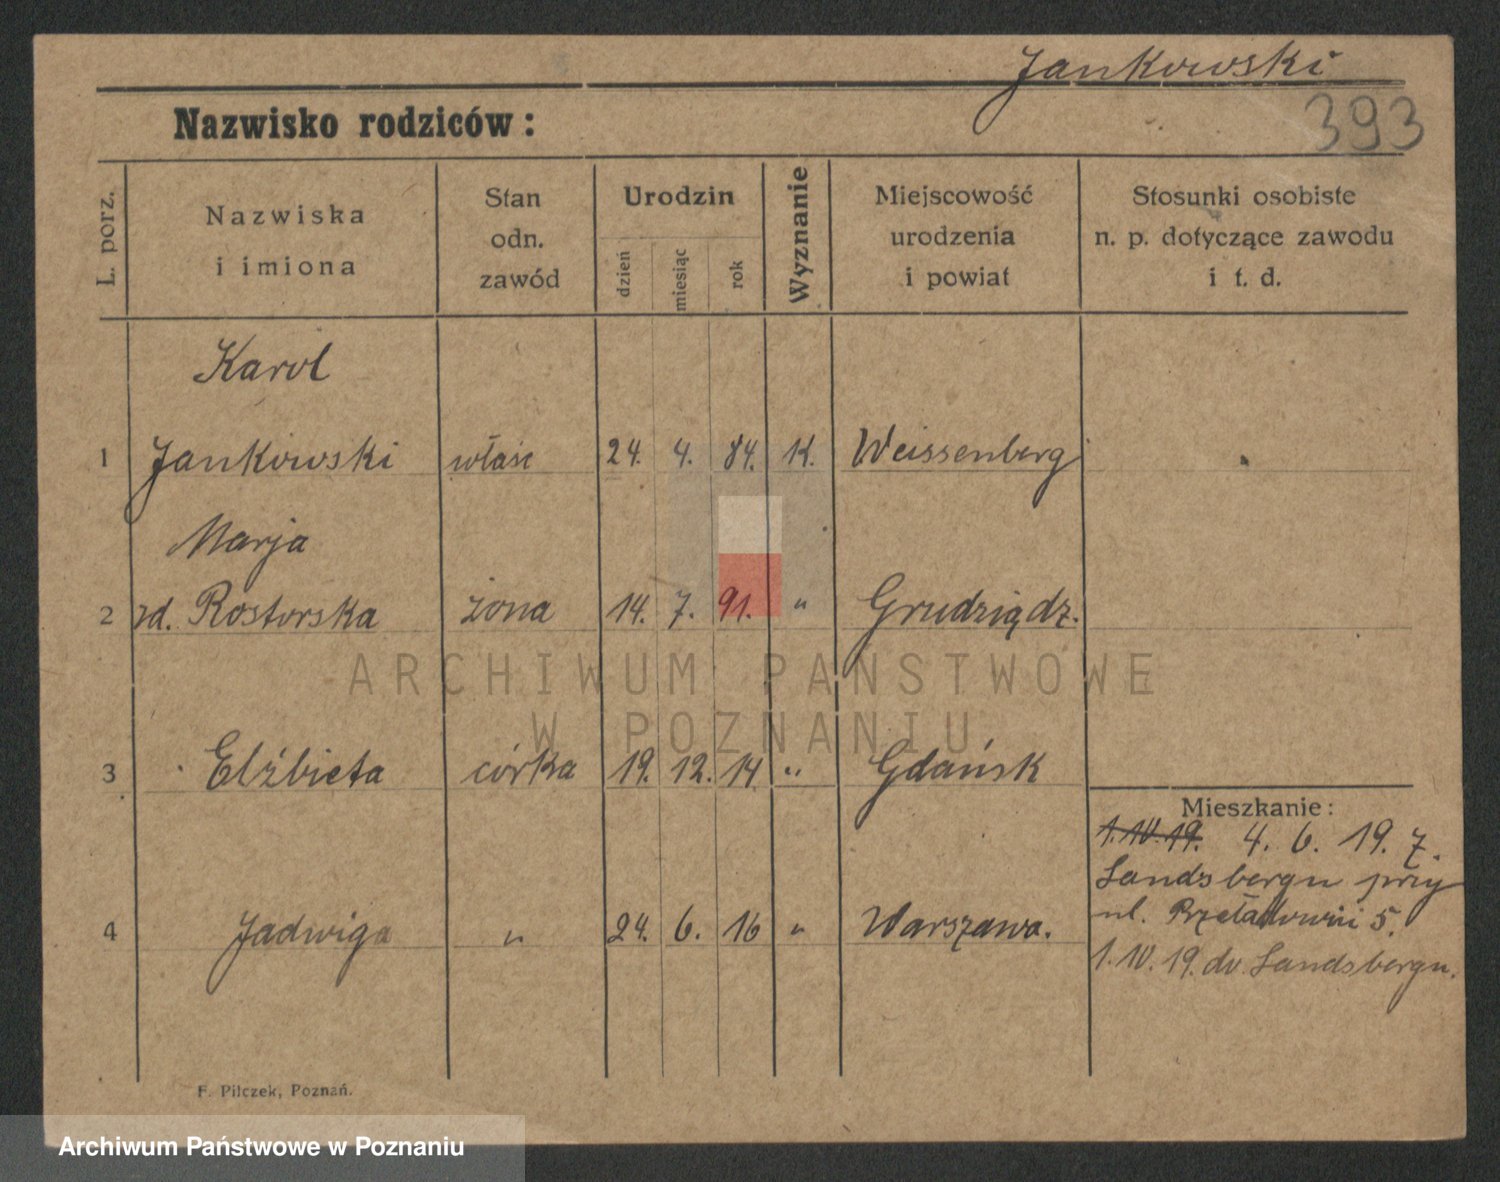 Jankowski
393
Nazwisko rodziców :
L. porz.
Nazwiska
i imiona
Stan
odn.
zawód
Urodzin
dzień
miesiąc
rok
Wyznanie
Miejscowość
urodzenia
i powiat
Stosunki osobiste
n. p. dotyczące zawodu
i t. d.
Karol
1 Jankowski właśc 24. 4. 84. K. Weissenberg
Marja
2 zd. Rostorska żona 14. 7. 91. " Grudziądz.
ARCHIWUM PAŃSTWOWE
W POZNANIU
3 Elżbieta córka 19. 12. 14. " Gdańsk
Mieszkanie :
1.10.19. 4. 6. 19. z.
Landsbergu przy
ul. 5.
4 Jadwiga " 24. 6. 16 " Warszawa.
1.10.19. do Landsbergu.
F. Pilczek, Poznań.
Archiwum Państwowe w Poznaniu